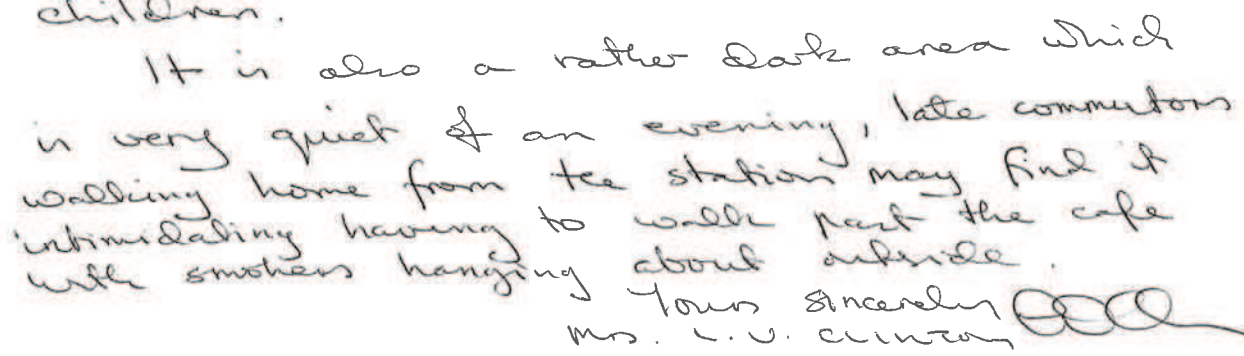 children.
It is also a rather dark area which
is very quiet of an evening, late commutors
walking home from the station may find it
intimidating having to walk past the cafe
with smokers hanging about outside.
Yours sincerely
Mrs. L.V. CLINTON